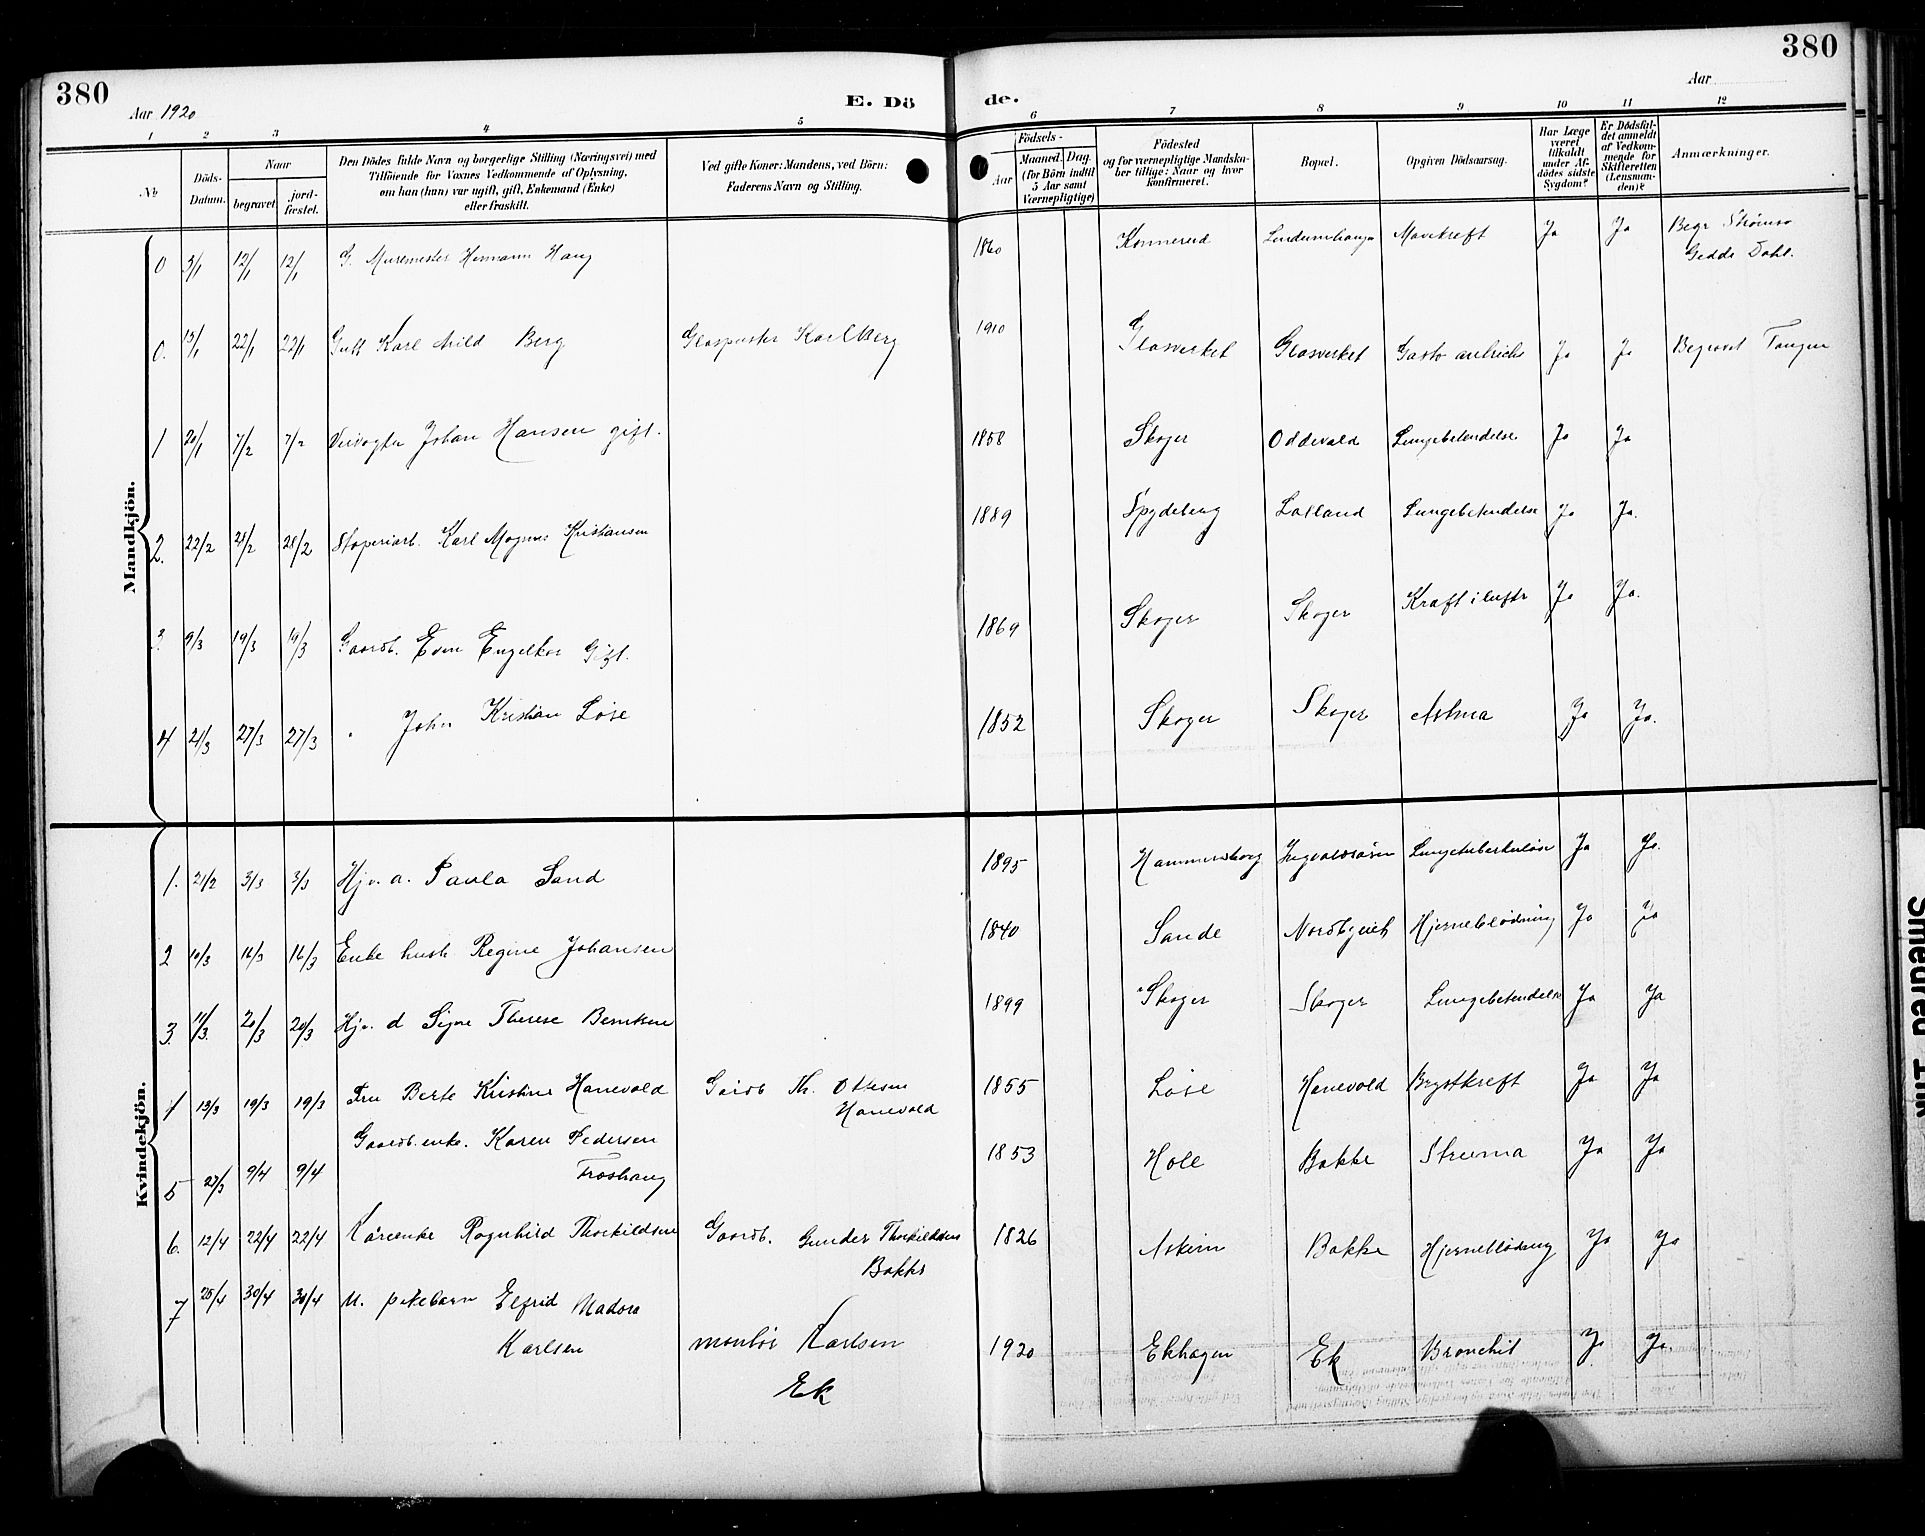 380
380
Aar 1920
E. Dö
de.
Aar
1 2 3 4 5 6 7 8 9 10 11 12
No
Döds-Datum.
Naar
begravet.
jordfæstet.
Den Dödes fulde Navn og borgerlige Stilling (Næringsvei) med
Tilföiende for Voxnes Vedkommende af Oplysning,
om han (hun) var ugift, gift, Enkemand (Enke)
eller fraskilt.
Ved gifte Koner: Mandens, ved Börn:
Faderens Navn og Stilling.
Födsels-
Aar
Maaned. Dag.
(for Börn indtil
5 Aar samt
Værnepligtige)
Födested
og for værnepligtige Mandska-
ber tillige: Naar og hvor
konfirmeret.
Bopæl.
Opgiven Dödsaarsag.
Har Læge
været
tilkaldt
under Af-
dödes sidste
Sygdom?
Er Dödsfal-
det anmeldt
af Vedkom-
mende for
Skifteretten
(Lensman-
den)?
Anmærkninger.
Mandkjön.
0 3/1 12/1 12/1 G. Muremester Hermann Haug 1860 Konnerud Mavekreft Ja Ja Begr Strømsø
Gedde Dahl.
0. 15/1 22/1 22/1 Gutt Karl Berg Glaspuster Karl Berg 1910 Glasverket Glasverket Ja Ja Begravet Tangen
1 20/1 7/2 7/2 Johan Hansen gift. 1858 Skoger Oddevald Lungebetendelse Ja Ja
2. 22/2 28/2 28/2 Støperiarb. Karl Magnus Kristiansen 1889 Spydeberg Lolland Lungebetendelse Ja Ja.
3. 9/3 19/3 19/3 Gaardb. Even Gift. 1869 Skoger Skoger Kraft i luftr Ja Ja.
4 21/3 27/3 27/3 " John Kristian Løse 1852 Skoger Skoger Astma Ja Ja.
Kvindekjön.
1. 21/2 3/3 3/3 Hj. v. a. Paula Sand 1895 Hammersborg Lungetuberkuløse Ja Ja.
2 10/3 16/3 16/3 Enke hush. Regine Johansen 1840 Sande Hjerneblødning Ja Ja
3. 11/3. 20/3 20/3 Hjv. d Signe Therese Bentsen 1899 Skoger Skoger Lungebetendelse Ja Ja
4 13/3 19/3 19/3 Fru Berte Kristine Hanevold Gardb Th. Ottesen
Hanevold 1855 Løse Hanevold Brystkreft Ja Ja
5 27/3 9/4 9/4 Gaardb.enke. Karen Pedersen
Froshaug 1853 Hole Bakke Struma Ja Ja
6. 12/4 22/4 22/4 Kårenke Ragnhild Thorkildsen Gaardb. Gunder Thorkildsen
Bakke 1826 Askim Bakke Hjerneblødning Ja Ja
7 25/4 30/4 30/4 U. pikebarn Elfrid Madora
Karlsen montør Karlsen
Ek 1920 Ekhagen Ek Bronchit Ja Ja.
Smedred 1m